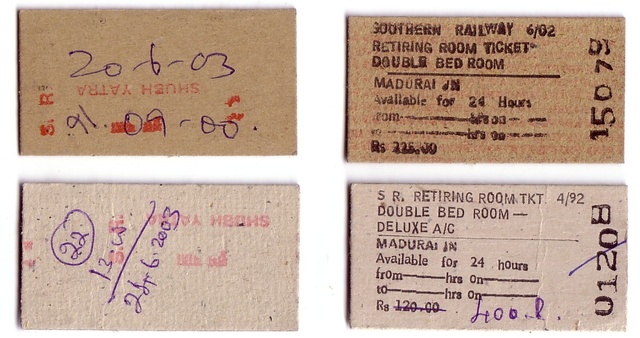 20-6-03
SHUBH YATRA
S. R
09-00.
SOUTHERN RAILWAY 6/02
RETIRING ROOM TICKET
DOUBLE BED ROOM
MADURAI JN
Available for 24 Hours
from—hrs on—
to—hrs on—
Rs 225.00
1507
SHUBH YATRA
22
24-6-2003
S R. RETIRING ROOM TKT 4/92
DOUBLE BED ROOM—
DELUXE A/C
MADURAI JN
Available for 24 hours
from—hrs on—
to—hrs on—
Rs 120.00
400
0120B